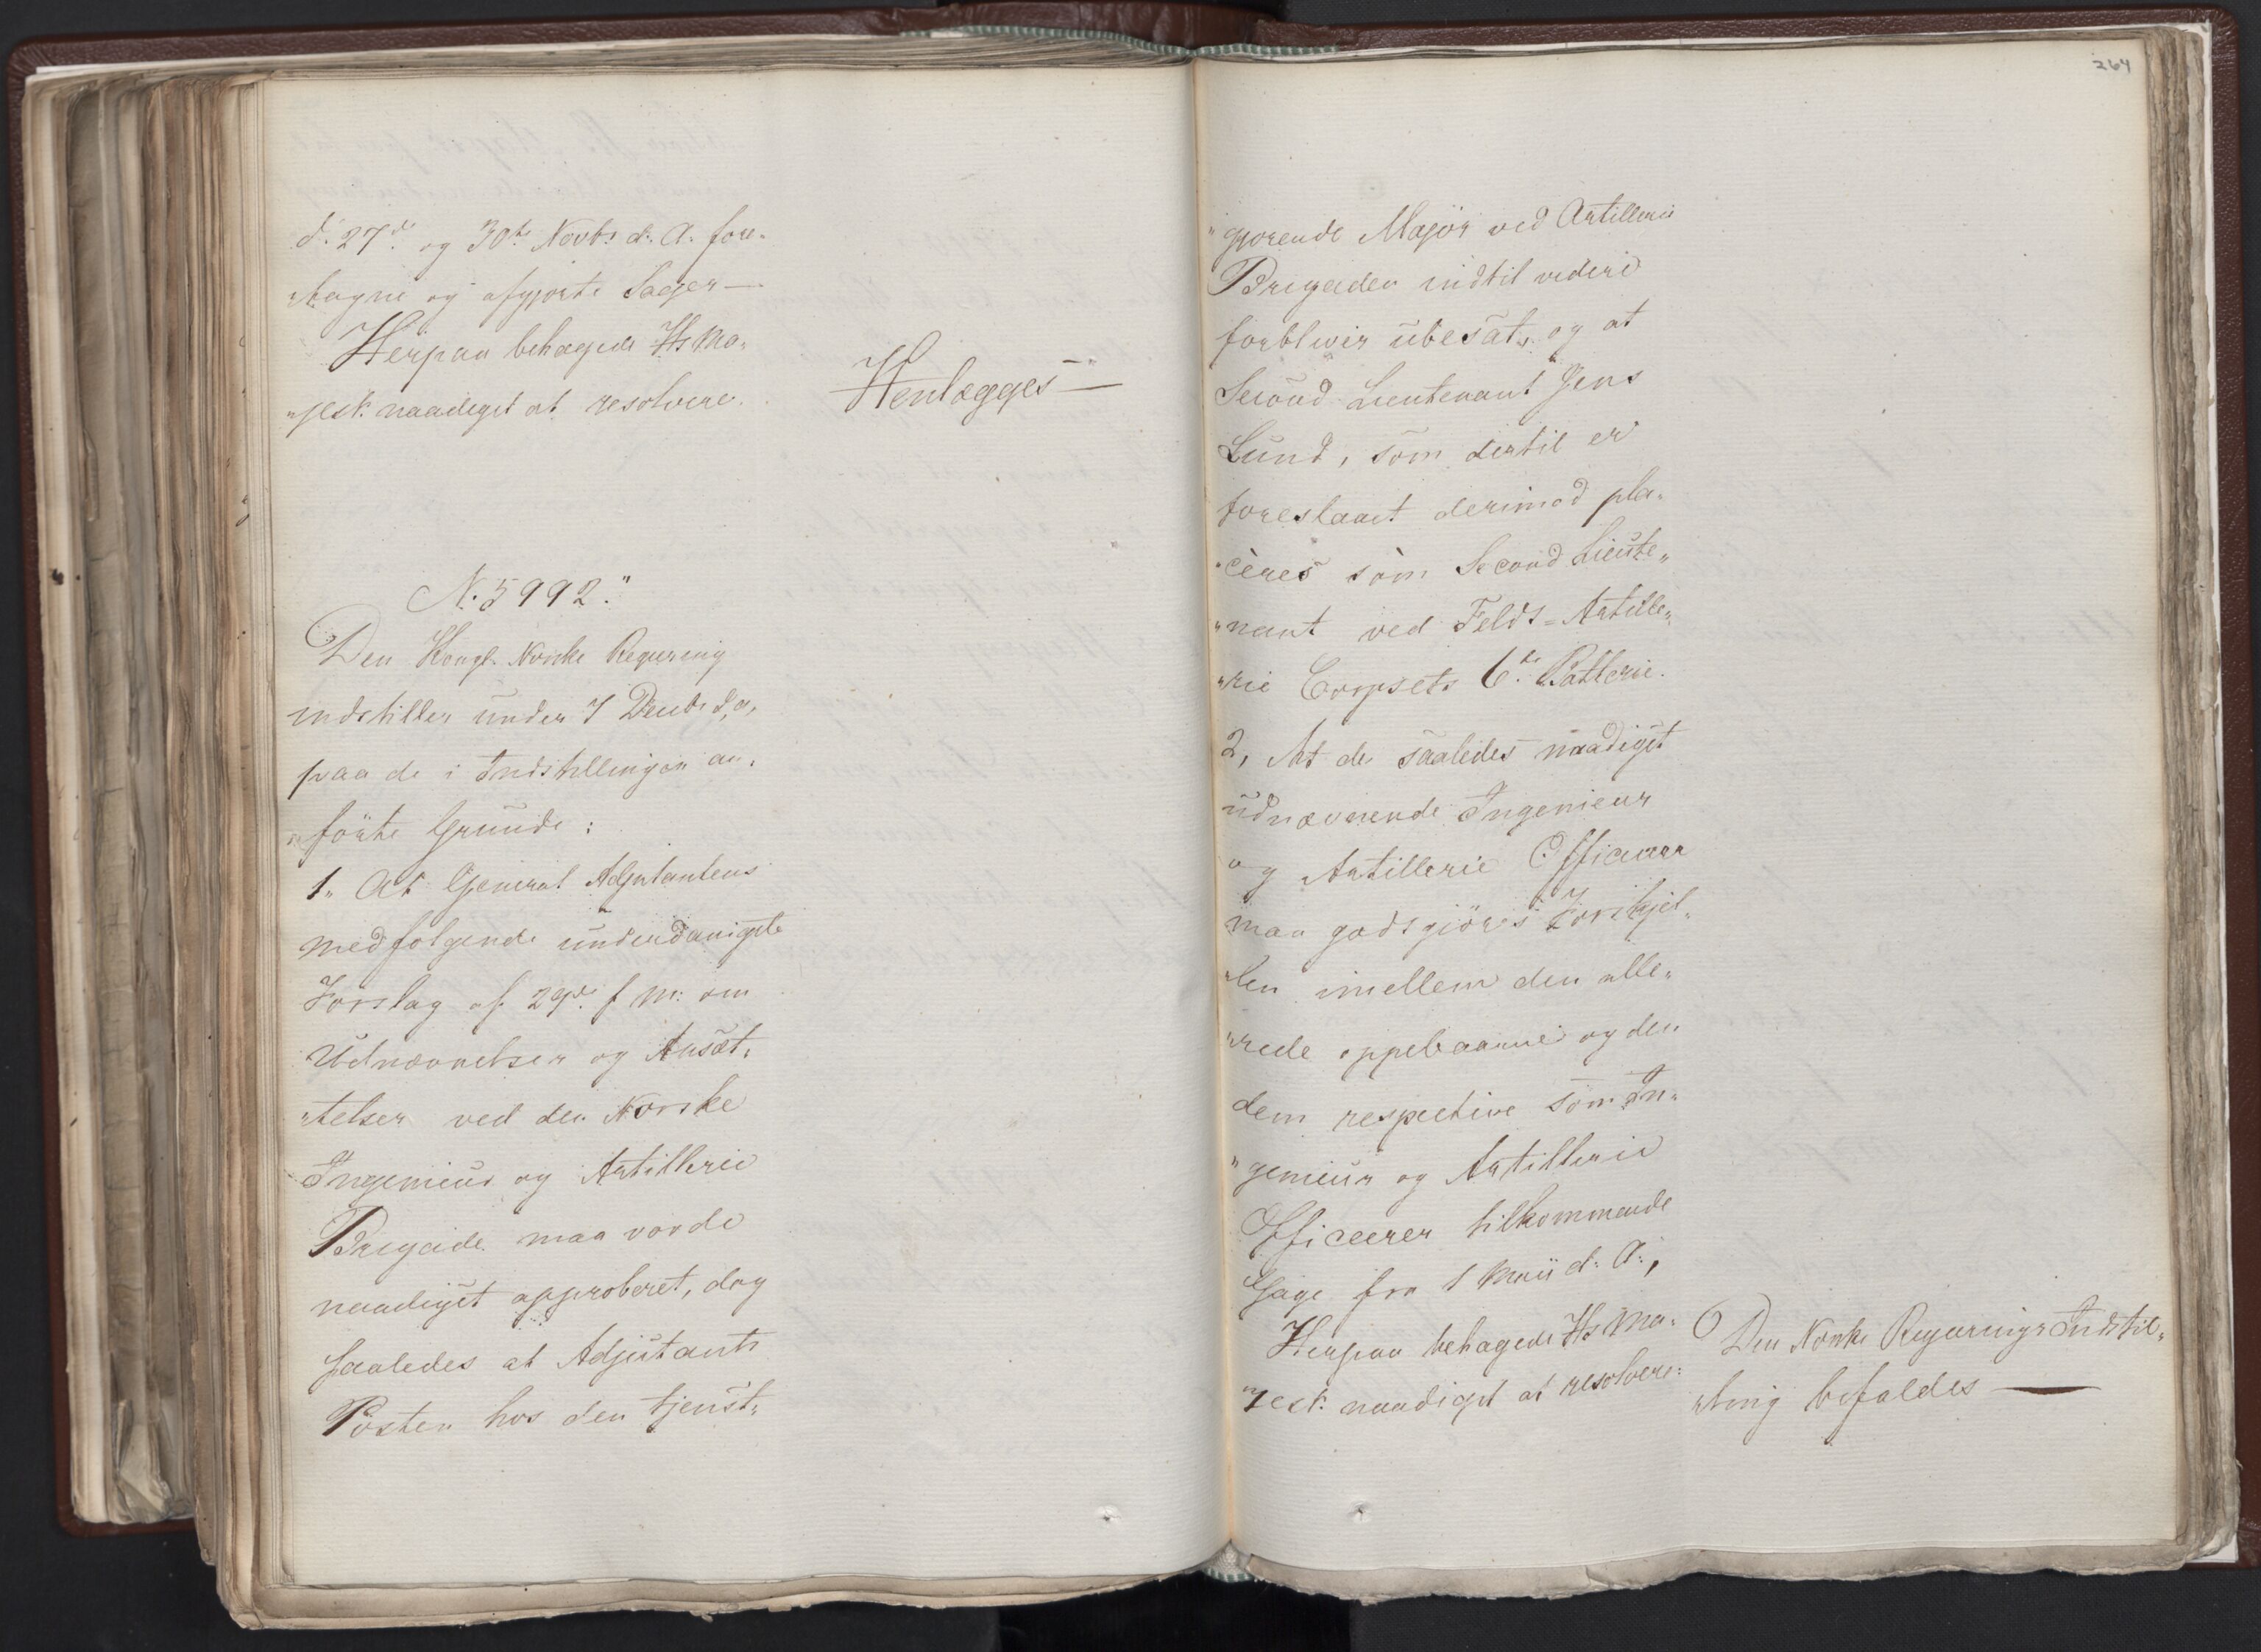 d. 27de og 30te Novbr d: A: fore-
"tagne og afgjorte Sager —
Herpaa behagede Hs Ma-
"jest: naadigst at resolvere.
Henlægges —
N. 5992."
Den Kongl. Norske Regjering
indstiller under 7 Decbr d. a.
paa de i Indstillingen an-
"förte Grunde:
1. At General Adjutantens
medfølgende underdanigste
Forslag af 29de f. M: om
Udnævnelser og Ansæt-
"telser ved den Norske
Ingenieur og Artillerie
Brigade maa vorde
naadigst approberet, dog
saaledes at Adjutants
Posten hos den tjenst-
264
"gjörende Major ved Artillerie
Brigaden indtil videre
forbliver ubesat, og at
Second Lieutenant Jens
Lund, som dertil er
foreslaaet derimod pla-
"ceres som Second Lieute-
"nant ved Feldt-Artille-
"rie Corpsets 6te Batterie.
2, At de saaledes naadigst
udnævnende Ingenieur
og Artillerie Officierer
maa godtgjöres Forskjel-
"len imellem den alle-
"rede oppebaarne og den
dem respective som In-
"genieur og Artillerie
Officerer tilkommende
Gage fra 1 Maii d. A:,
Herpaa behagede Hs Ma-
"jest: naadigst at resolvere:
Den Norske Regjerings Indstil-
"ling bifaldes —